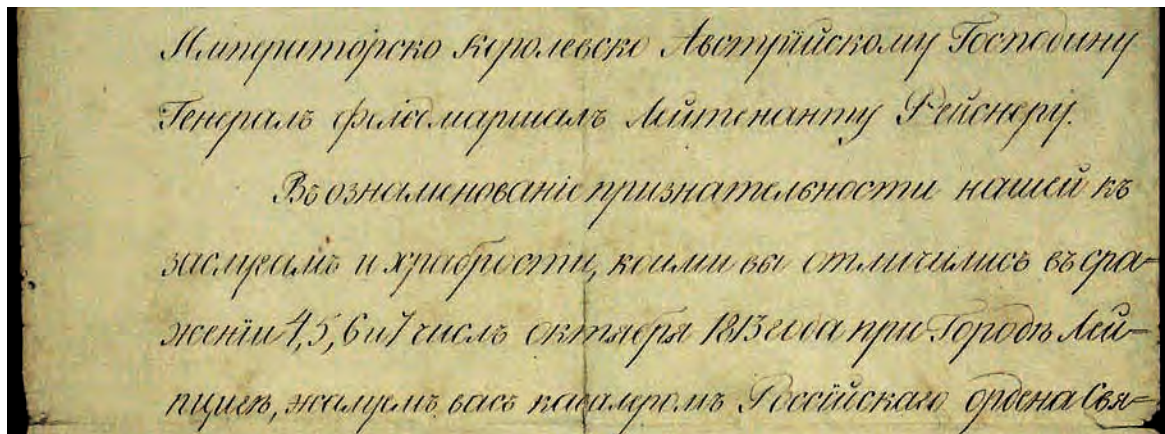 Императорско Королевско Австрийскому Господину
Генералъ фельдмаршалъ Лейтенанту Рейснеру.
Въ ознаменованіе признательности нашей къ
заслугамъ и храбрости, коими вы отличились въ сра=
женіи 4, 5, 6 и 7 числъ октября 1813 года при Городѣ Лей=
пцигѣ, жалуемъ васъ кавалеромъ Россійскаго ордена Свя=